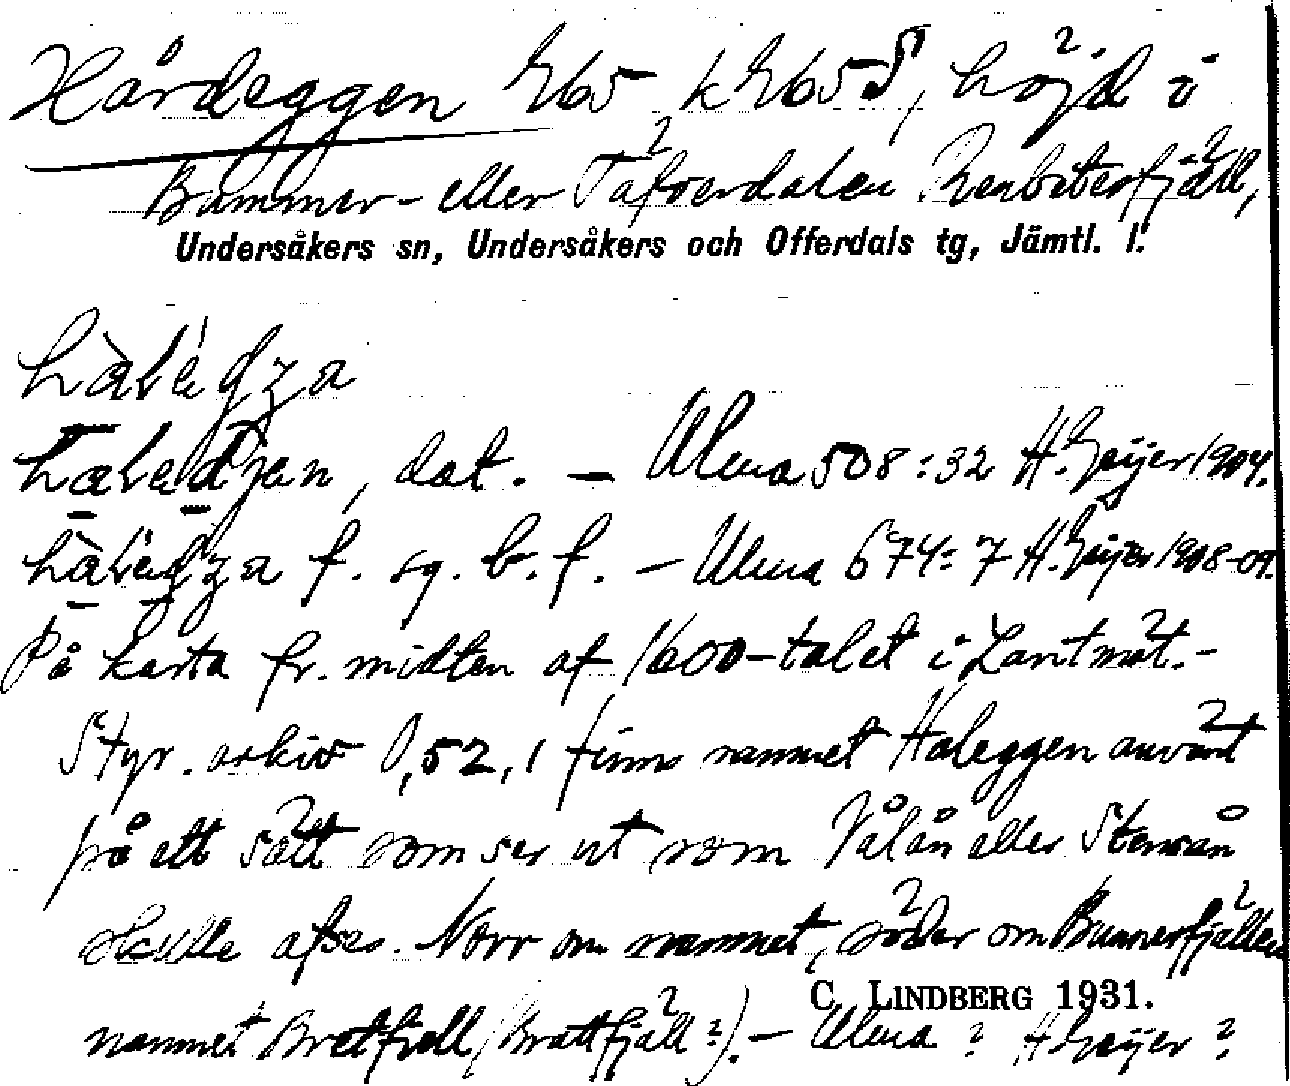 Hårdeggen G65 k G65S, höjd i
Bunner- eller Täfverdalen Renbetesfjäll,
Undersåkers sn, Undersåkers och Offerdals tg, Jämtl. l.
dat. – Ulma 508:32 H. Geijer 1904.
f. sg. b. f. – Ulma 674:7 H. Geijer 1908-09.
På karta fr. midten af 1600-talet i Lantmät.-
Styr. arkiv O,52,1 finns namnet Haleggen använt
på ett sätt som ser ut som Vålån eller Stenån
skulle afses. Norr om namnet, söder om Bunnerfjällen
namnet Bretfiell (Brattfjäll?). – Ulma ? H Geijer ?
C. LINDBERG 1931.